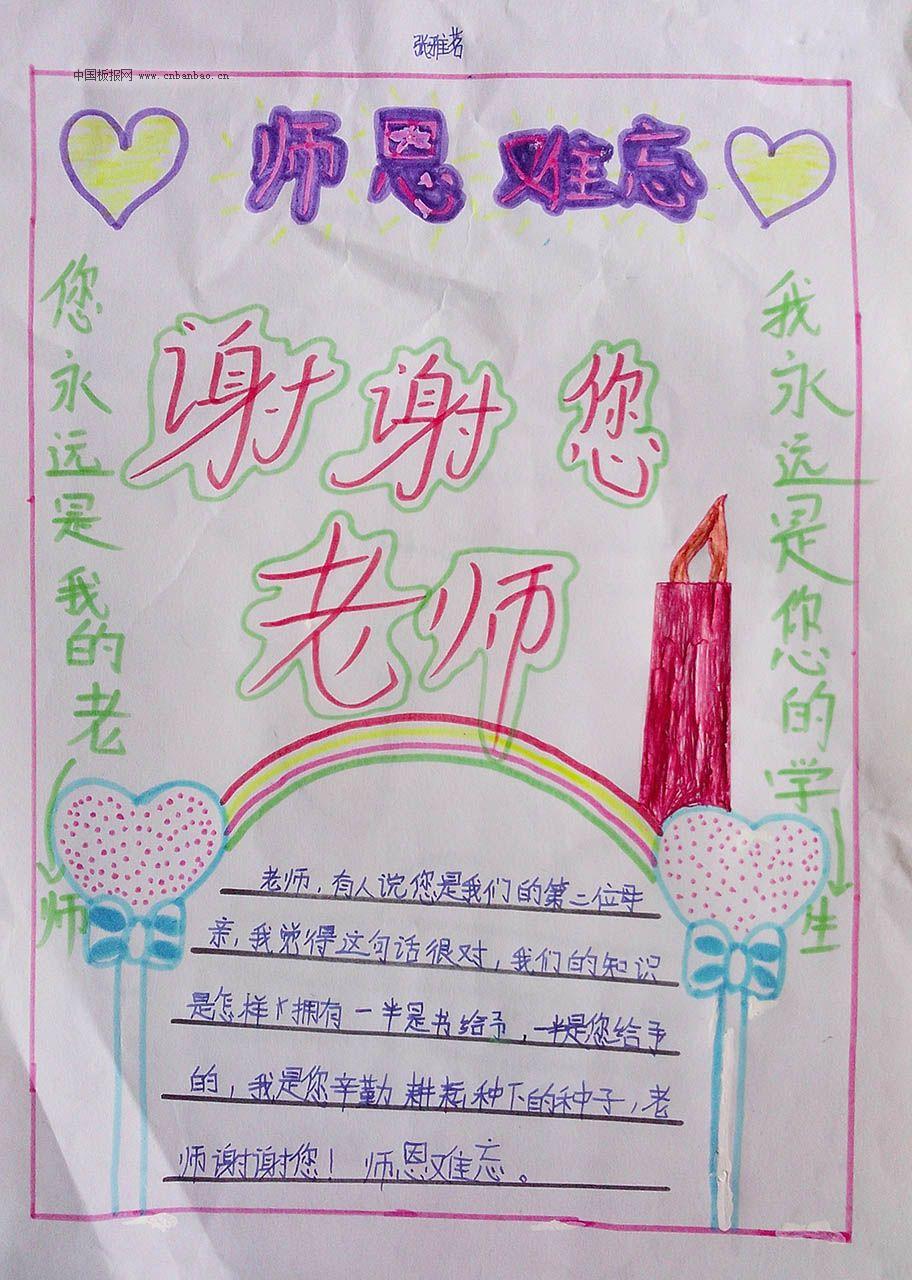 张雅茗
中国板报网 www.cnbanbao.cn
师恩难忘
您永远是我的老师
我永远是您的学生
谢谢您
老师
老师，有人说您是我们的第二位母
亲，我觉得这句话很对，我们的知识
是怎样拥有一半是书给予，一半是您给予
的，我是您辛勤耕耘种下的种子，老
师谢谢您！师恩难忘。